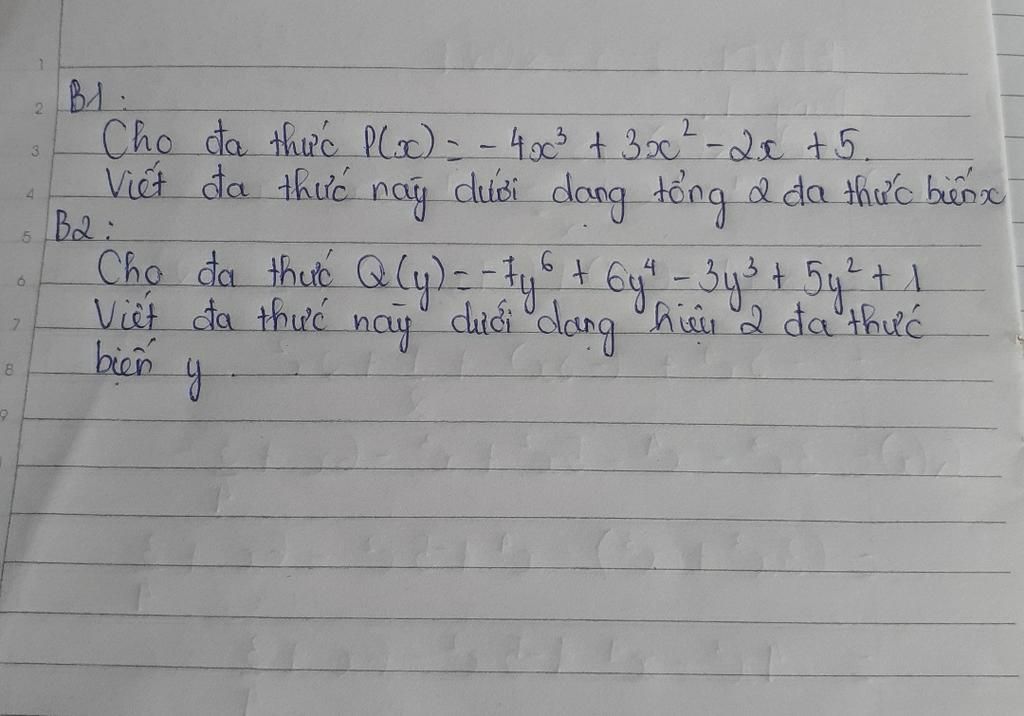 B1:
Cho đa thức P(x) = - 4x³ + 3x² - 2x + 5.
Viết đa thức này dưới dạng tổng 2 đa thức biến x
B2:
Cho đa thức Q(y) = -7y⁶ + 6y⁴ - 3y³ + 5y² + 1
Viết đa thức này dưới dạng hiệu 2 đa thức
biến y.
1
2
3
4
5
6
7
8
9